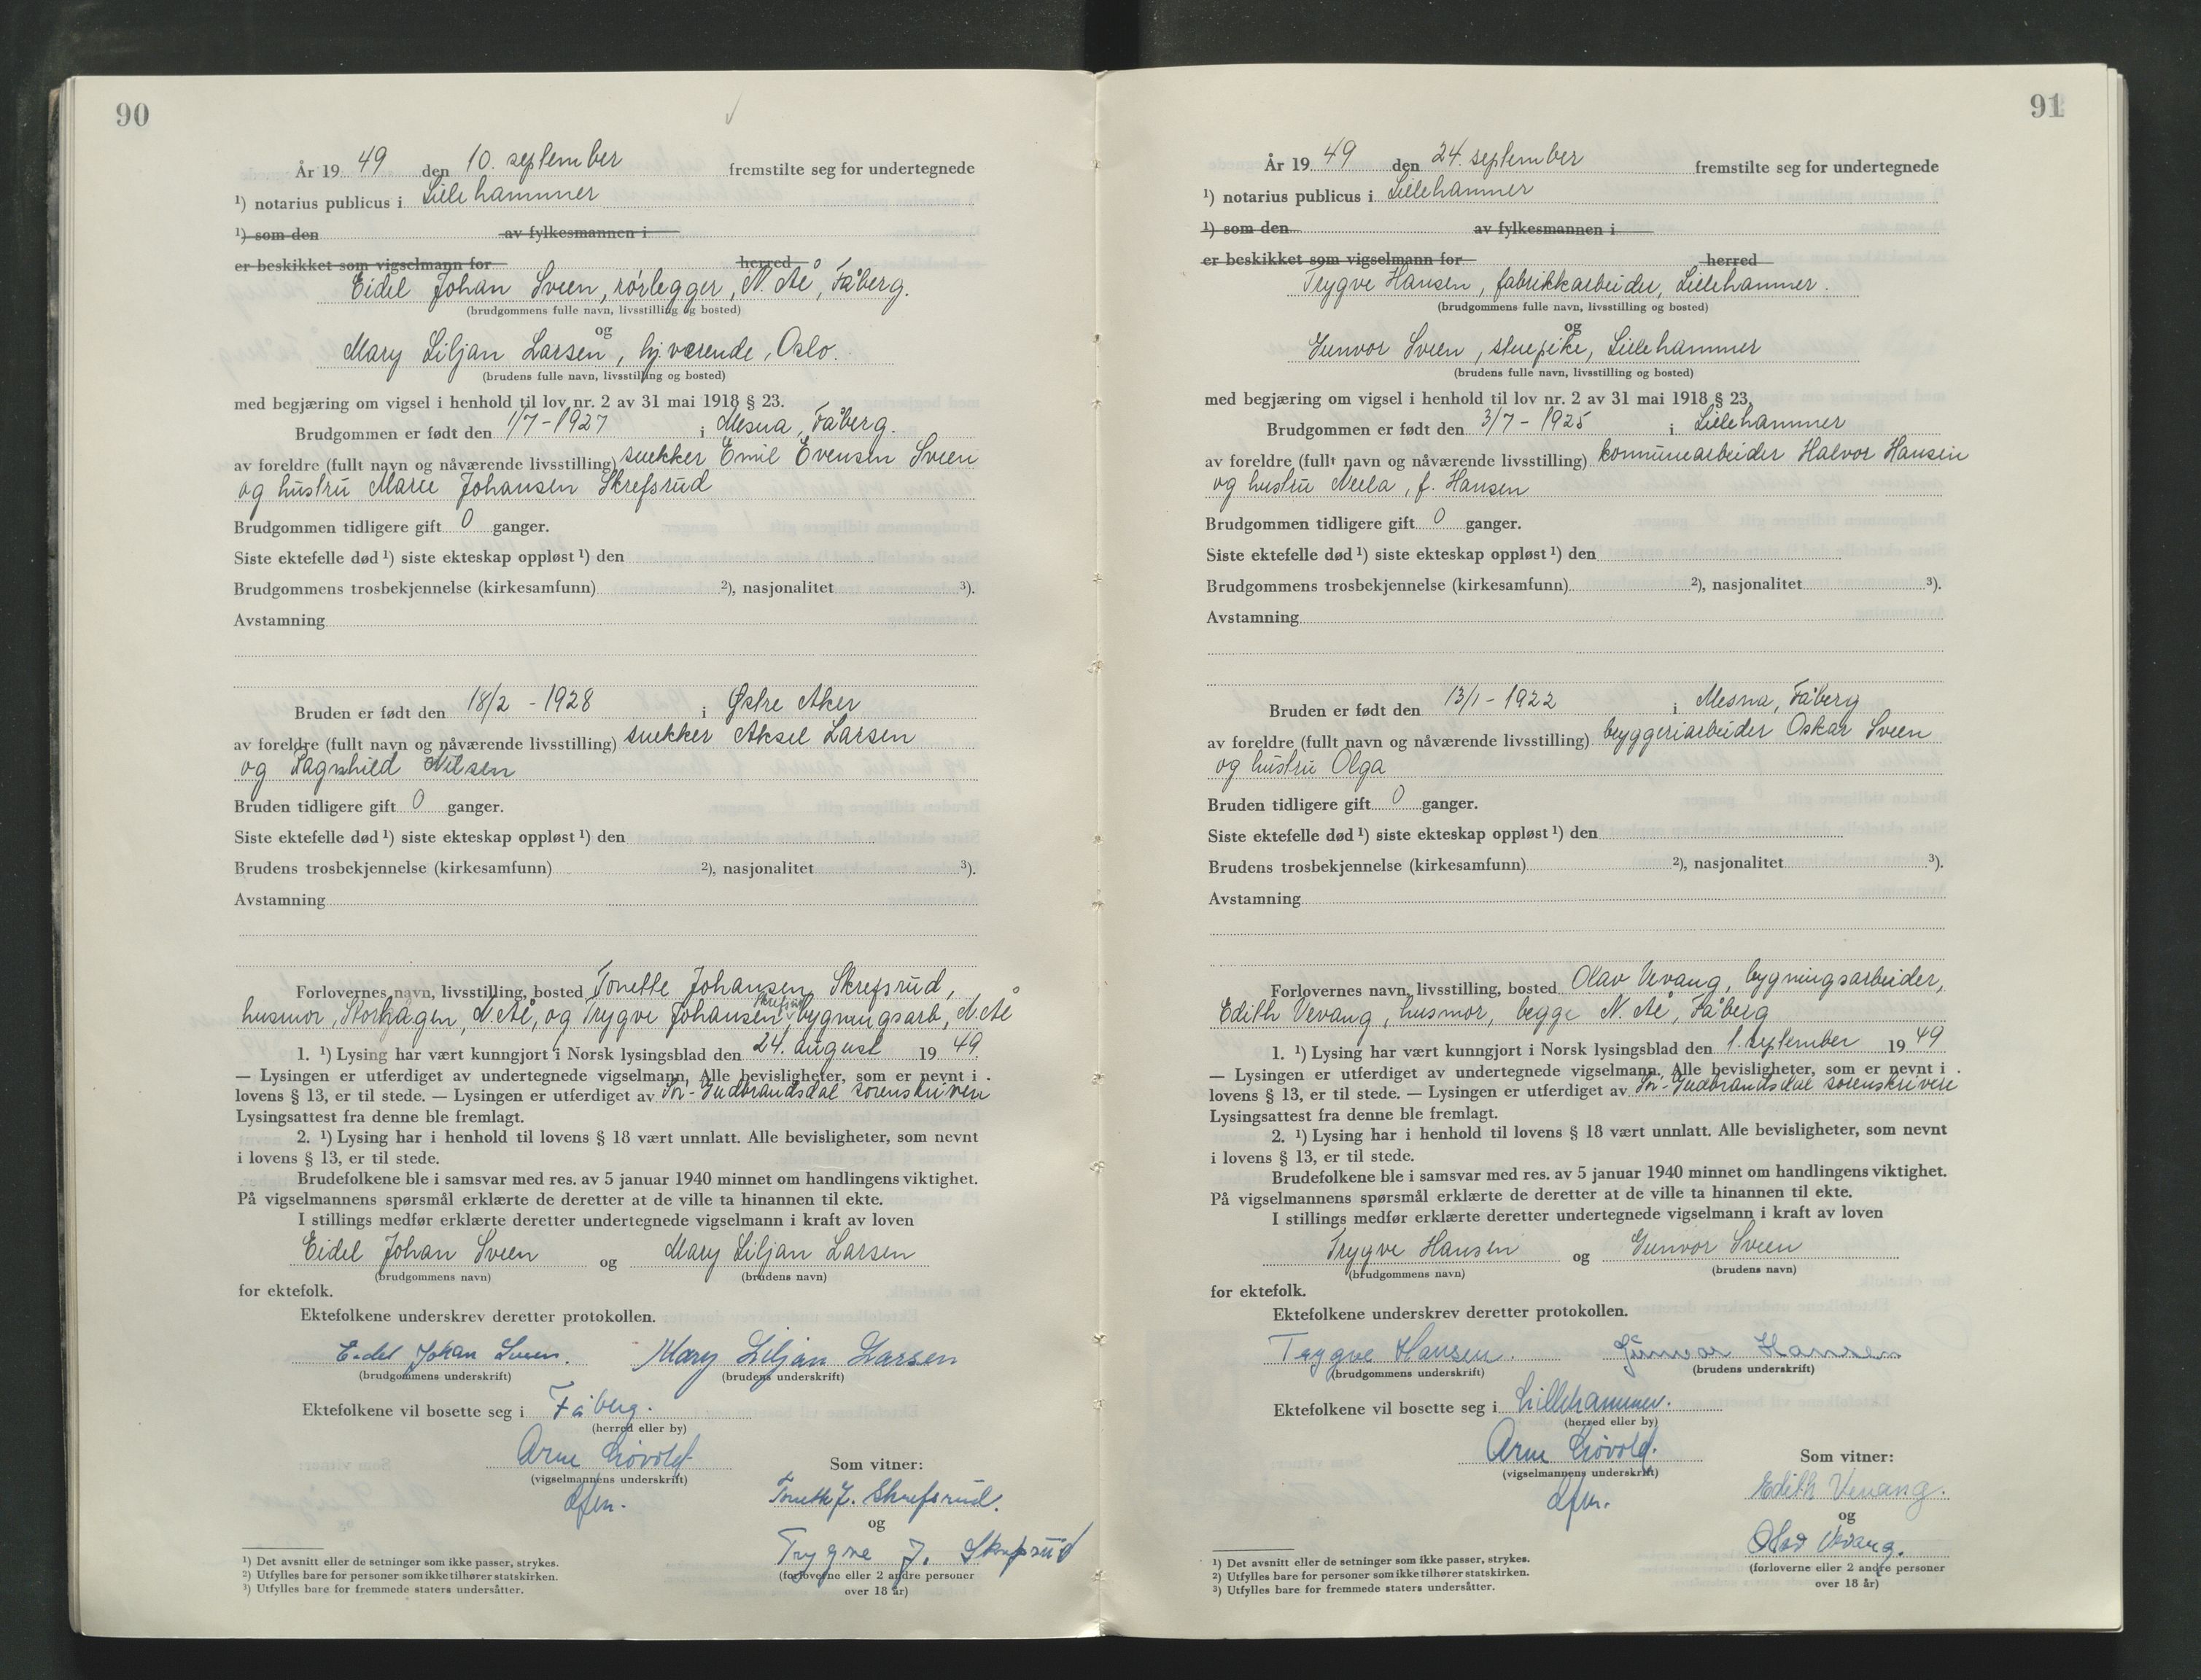 90
År 19 49 den 10. september fremstilte seg for undertegnede
¹) notarius publicus i Lillehammer
¹) som den av fylkesmannen i
er beskikket som vigselmann for herred
Eidel Johan Sveen, rørlegger, N. Ål, Fåberg.
(brudgommens fulle navn, livsstilling og bosted)
og
Mary Liljan Larsen, hj.værende, Oslo.
(brudens fulle navn, livsstilling og bosted)
med begjæring om vigsel i henhold til lov nr. 2 av 31 mai 1918 § 23.
Brudgommen er født den 1/7-1927 i Mesna, Fåberg.
av foreldre (fullt navn og nåværende livsstilling) snekker Emil Evensen Sveen
og hustru Marie Johansen Skrefsrud
Brudgommen tidligere gift 0 ganger.
Siste ektefelle død ¹) siste ekteskap oppløst ¹) den
Brudgommens trosbekjennelse (kirkesamfunn) ²), nasjonalitet ³).
Avstamning
Bruden er født den 18/2 - 1928 i Østre Aker
av foreldre (fullt navn og nåværende livsstilling) snekker Aksel Larsen
og Ragnhild Nilsen
Bruden tidligere gift 0 ganger.
Siste ektefelle død ¹) siste ekteskap oppløst ¹) den
Brudens trosbekjennelse (kirkesamfunn) ²), nasjonalitet ³).
Avstamning
Forlovernes navn, livsstilling, bosted Tonette Johansen Skrefsrud,
husmor, Storhagen, N. Ål, og Trygve Johansen Skrefsrud, bygningsarb, N. Ål
1. ¹) Lysing har vært kunngjort i Norsk lysingsblad den 24. august 19 49.
— Lysingen er utferdiget av undertegnede vigselmann. Alle bevisligheter, som er nevnt i
lovens § 13, er til stede. — Lysingen er utferdiget av Sør-Gudbrandsdal sorenskriveri
Lysingsattest fra denne ble fremlagt.
2. ¹) Lysing har i henhold til lovens § 18 vært unnlatt. Alle bevisligheter, som nevnt
i lovens § 13, er til stede.
Brudefolkene ble i samsvar med res. av 5 januar 1940 minnet om handlingens viktighet.
På vigselmannens spørsmål erklærte de deretter at de ville ta hinannen til ekte.
I stillings medfør erklærte deretter undertegnede vigselmann i kraft av loven
Eidel Johan Sveen og Mary Liljan Larsen
(brudgommens navn) (brudens navn)
for ektefolk.
Ektefolkene underskrev deretter protokollen.
Eidel Johan Sveen. Mary Liljan Larsen
(brudgommens underskrift) (brudens underskrift)
Ektefolkene vil bosette seg i Fåberg.
(herred eller by)
Arne Løvold
(vigselmannens underskrift)
dfm.
Som vitner:
Tonette J. Skrefsrud.
og
Trygve J. Skrefsrud
(forloverne eller 2 andre personer
over 18 år)
¹) Det avsnitt eller de setninger som ikke passer, strykes.
²) Utfylles bare for personer som ikke tilhører statskirken.
³) Utfylles bare for fremmede staters undersåtter.
91
År 19 49 den 24. september fremstilte seg for undertegnede
¹) notarius publicus i Lillehammer
¹) som den av fylkesmannen i
er beskikket som vigselmann for herred
Trygve Hansen, fabrikkarbeider, Lillehammer.
(brudgommens fulle navn, livsstilling og bosted)
og
Gunvor Sveen, stuepike, Lillehammer
(brudens fulle navn, livsstilling og bosted)
med begjæring om vigsel i henhold til lov nr. 2 av 31 mai 1918 § 23.
Brudgommen er født den 3/7 - 1925 i Lillehammer
av foreldre (fullt navn og nåværende livsstilling) kommunearbeider Halvor Hansen
og hustru f. Hansen
Brudgommen tidligere gift 0 ganger.
Siste ektefelle død ¹) siste ekteskap oppløst ¹) den
Brudgommens trosbekjennelse (kirkesamfunn) ²), nasjonalitet ³).
Avstamning
Bruden er født den 13/1 - 1922 i Mesna, Fåberg
av foreldre (fullt navn og nåværende livsstilling) bryggeriarbeider Oskar Sveen
og hustru Olga
Bruden tidligere gift 0 ganger.
Siste ektefelle død ¹) siste ekteskap oppløst ¹) den
Brudens trosbekjennelse (kirkesamfunn) ²), nasjonalitet ³).
Avstamning
Forlovernes navn, livsstilling, bosted Olav Vevang, bygningsarbeider,
Edith Vevang, husmor, begge N. Ål, Fåberg
1. ¹) Lysing har vært kunngjort i Norsk lysingsblad den 1. september 19 49
— Lysingen er utferdiget av undertegnede vigselmann. Alle bevisligheter, som er nevnt i
lovens § 13, er til stede. — Lysingen er utferdiget av Sør-Gudbrandsdal sorenskriveri
Lysingsattest fra denne ble fremlagt.
2. ¹) Lysing har i henhold til lovens § 18 vært unnlatt. Alle bevisligheter, som nevnt
i lovens § 13, er til stede.
Brudefolkene ble i samsvar med res. av 5 januar 1940 minnet om handlingens viktighet.
På vigselmannens spørsmål erklærte de deretter at de ville ta hinannen til ekte.
I stillings medfør erklærte deretter undertegnede vigselmann i kraft av loven
Trygve Hansen og Gunvor Sveen
(brudgommens navn) (brudens navn)
for ektefolk.
Ektefolkene underskrev deretter protokollen.
Trygve Hansen. Gunvor Hansen
(brudgommens underskrift) (brudens underskrift)
Ektefolkene vil bosette seg i Lillehammer.
(herred eller by)
Arne Løvold.
(vigselmannens underskrift)
dfm.
Som vitner:
Edith Vevang.
og
Olav Vevang.
(forloverne eller 2 andre personer
over 18 år)
¹) Det avsnitt eller de setninger som ikke passer, strykes.
²) Utfylles bare for personer som ikke tilhører statskirken.
³) Utfylles bare for fremmede staters undersåtter.